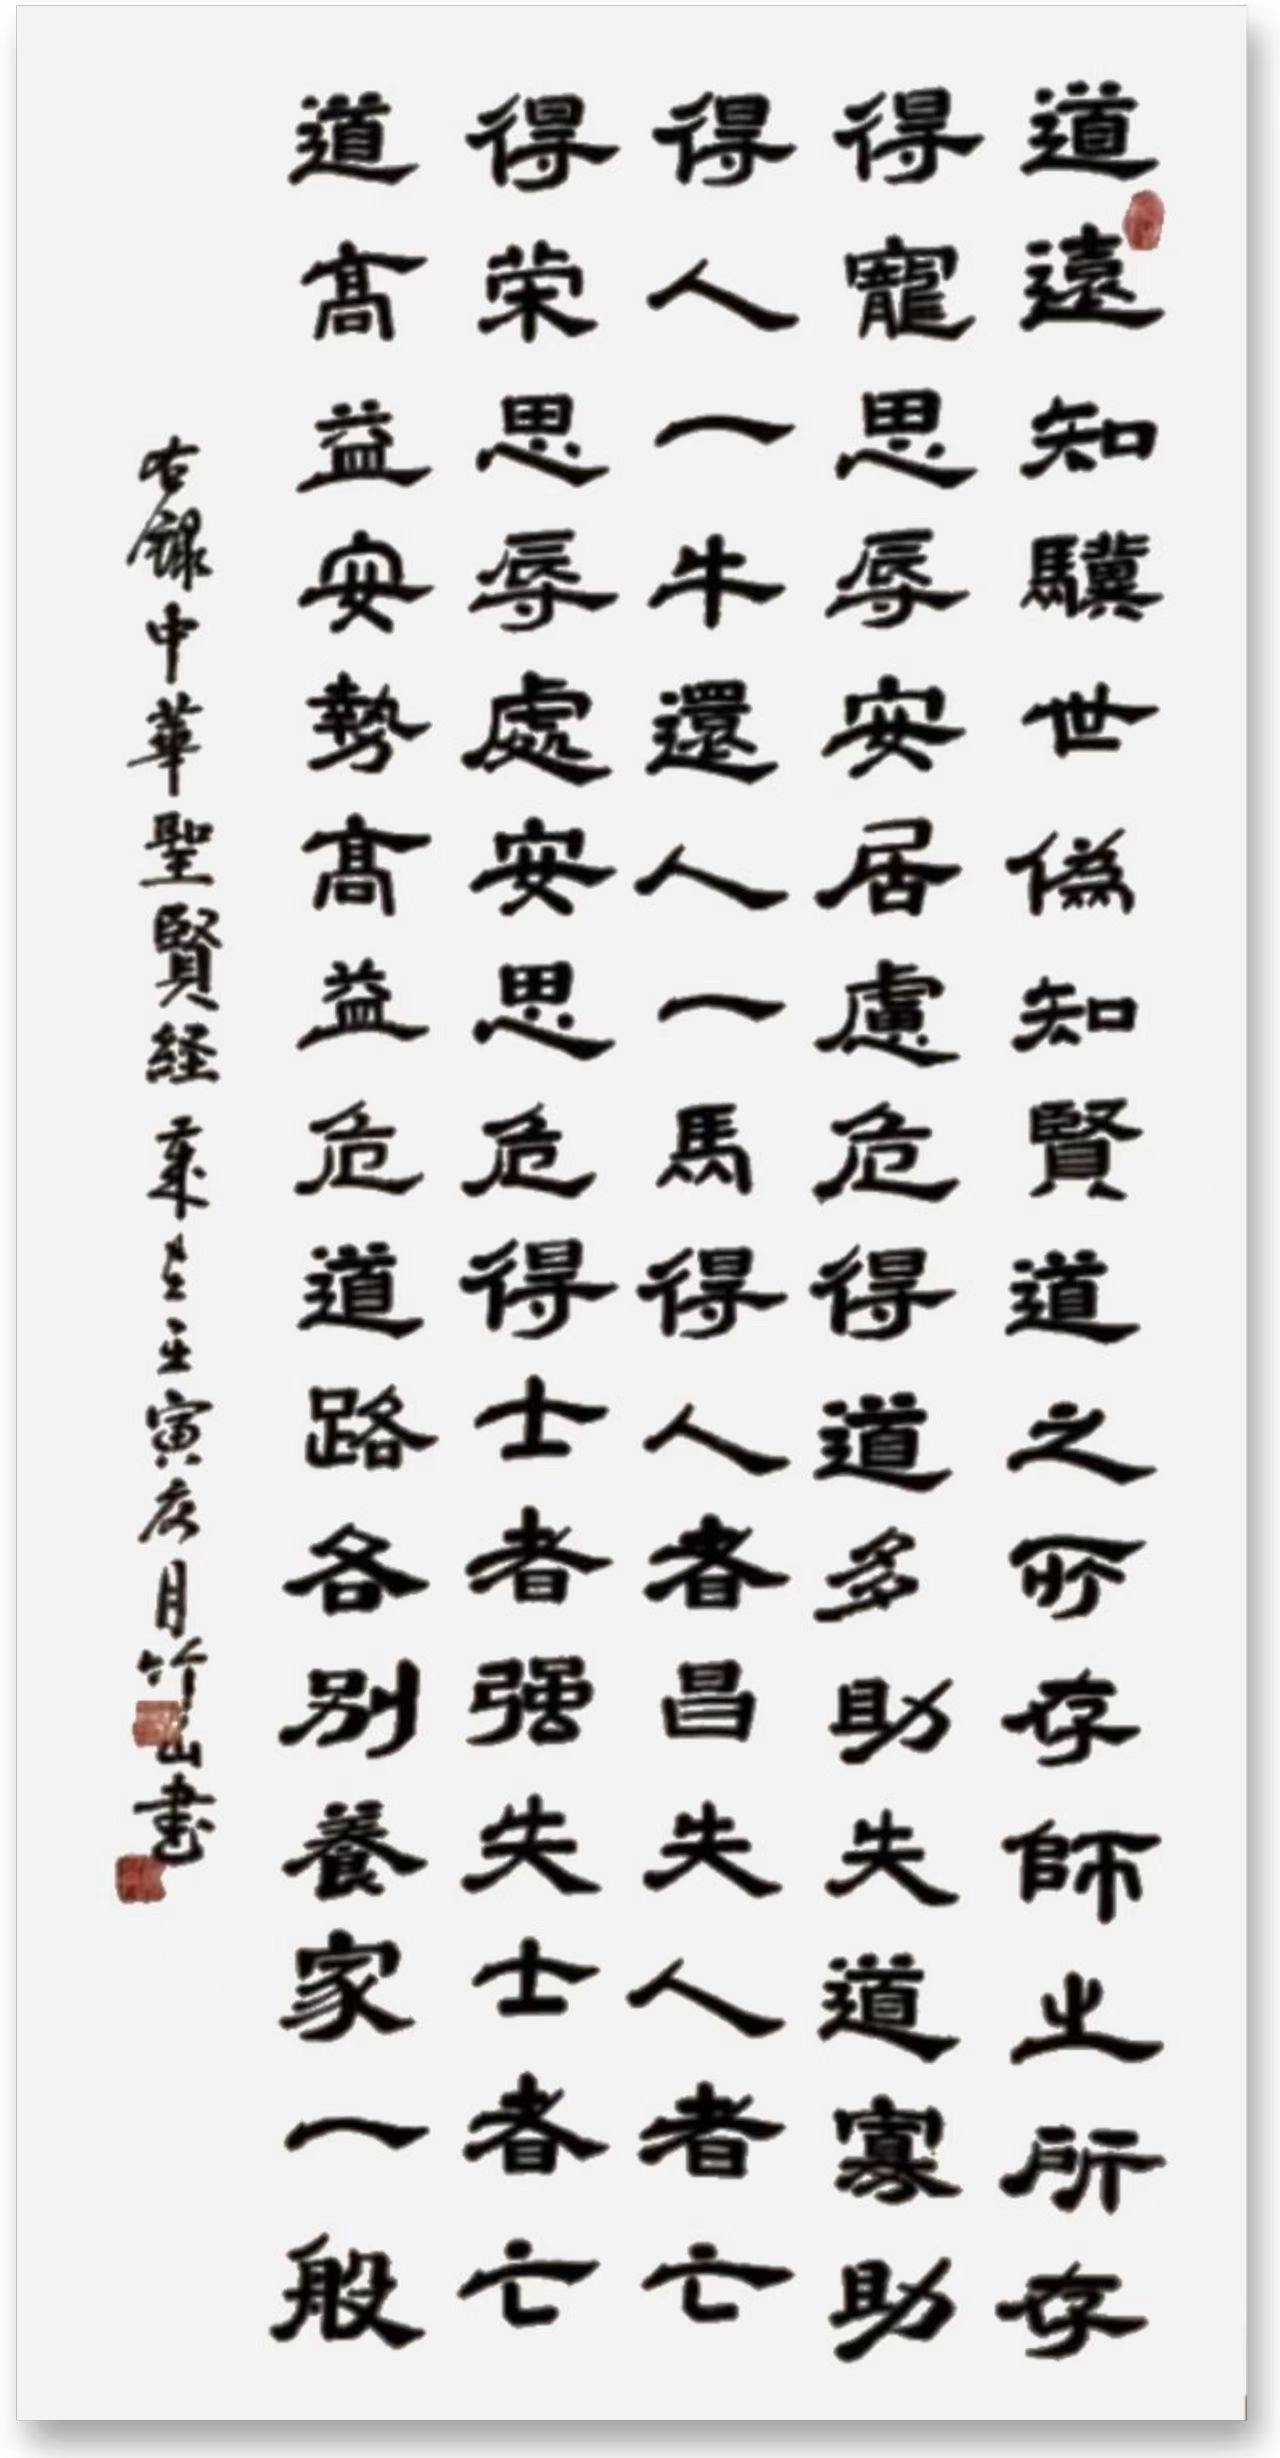 道遠知驥世偽知賢道之所存師之所存
得寵思辱安居慮危得道多助失道寡助
得人一牛還人一馬得人者昌失人者亡
得荣思辱處安思危得士者强失士者亡
道髙益安勢髙益危道路各别養家一般
右錄中華聖賢経 壬寅 月竹山書